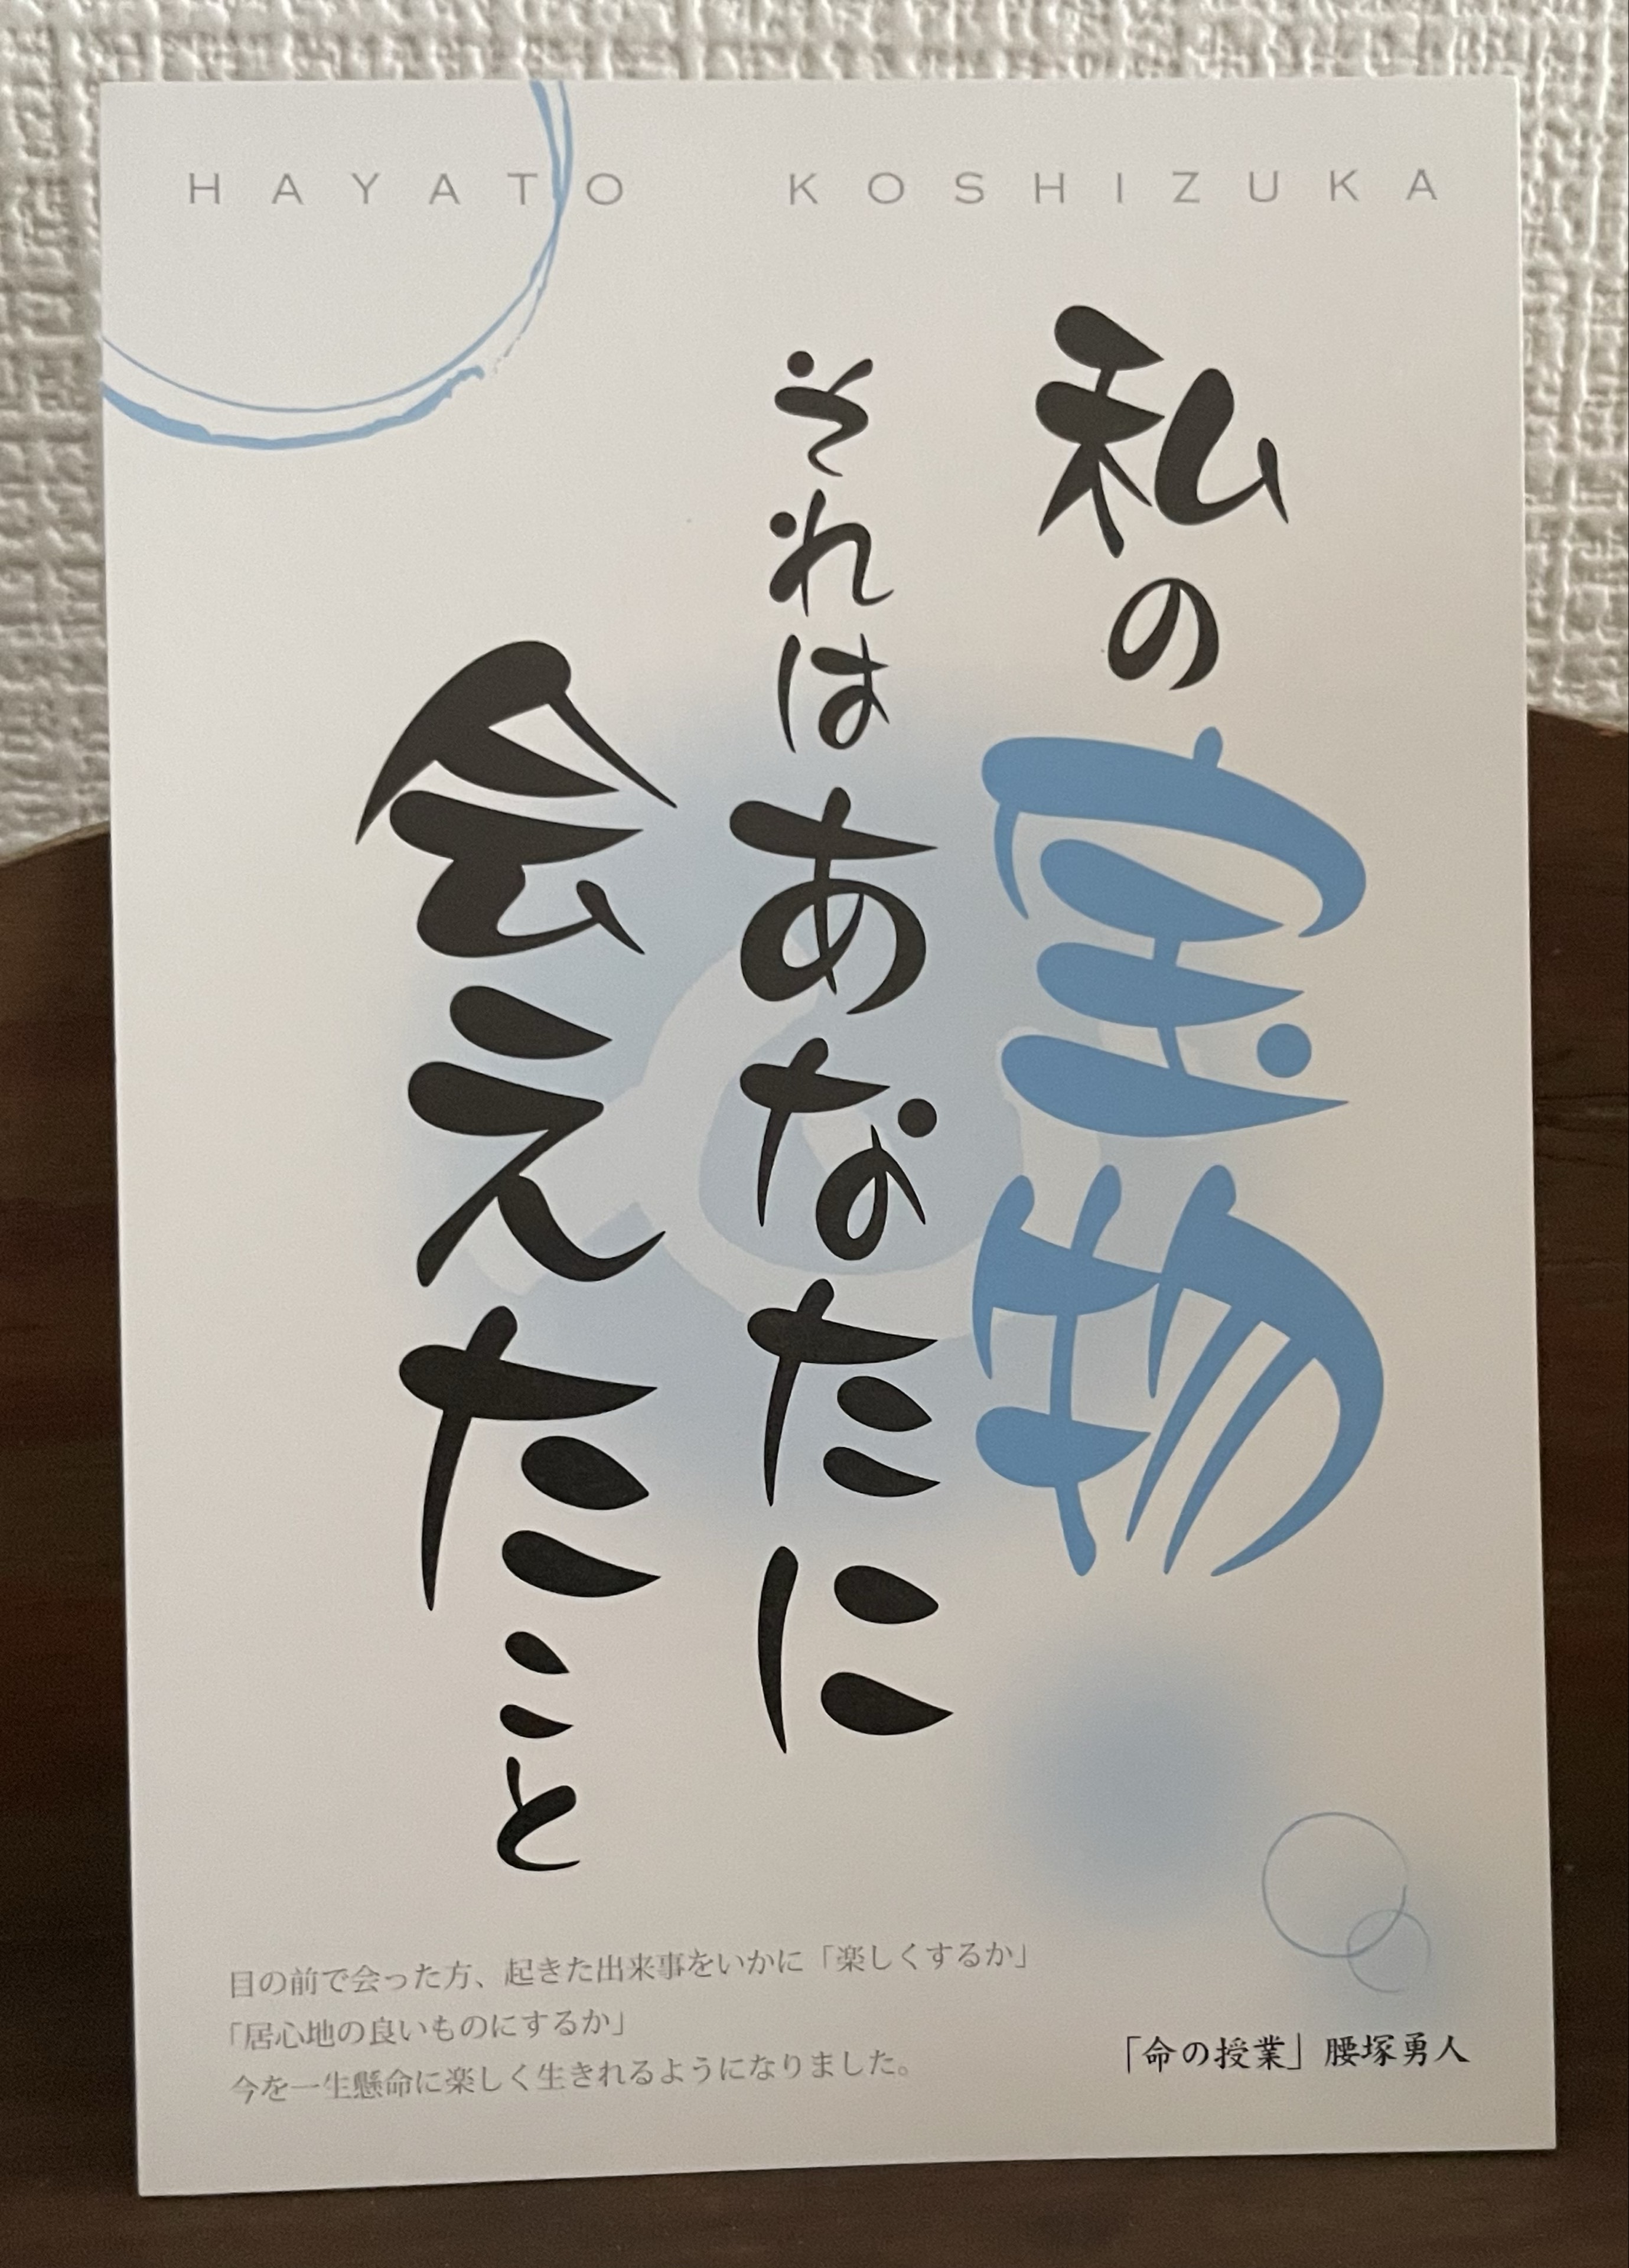 HAYATO KOSHIZUKA
私の宝物
それはあなたに
会えたこと
目の前で会った方、起きた出来事をいかに「楽しくするか」
「居心地の良いものにするか」
今を一生懸命に楽しく生きれるようになりました。
「命の授業」腰塚勇人